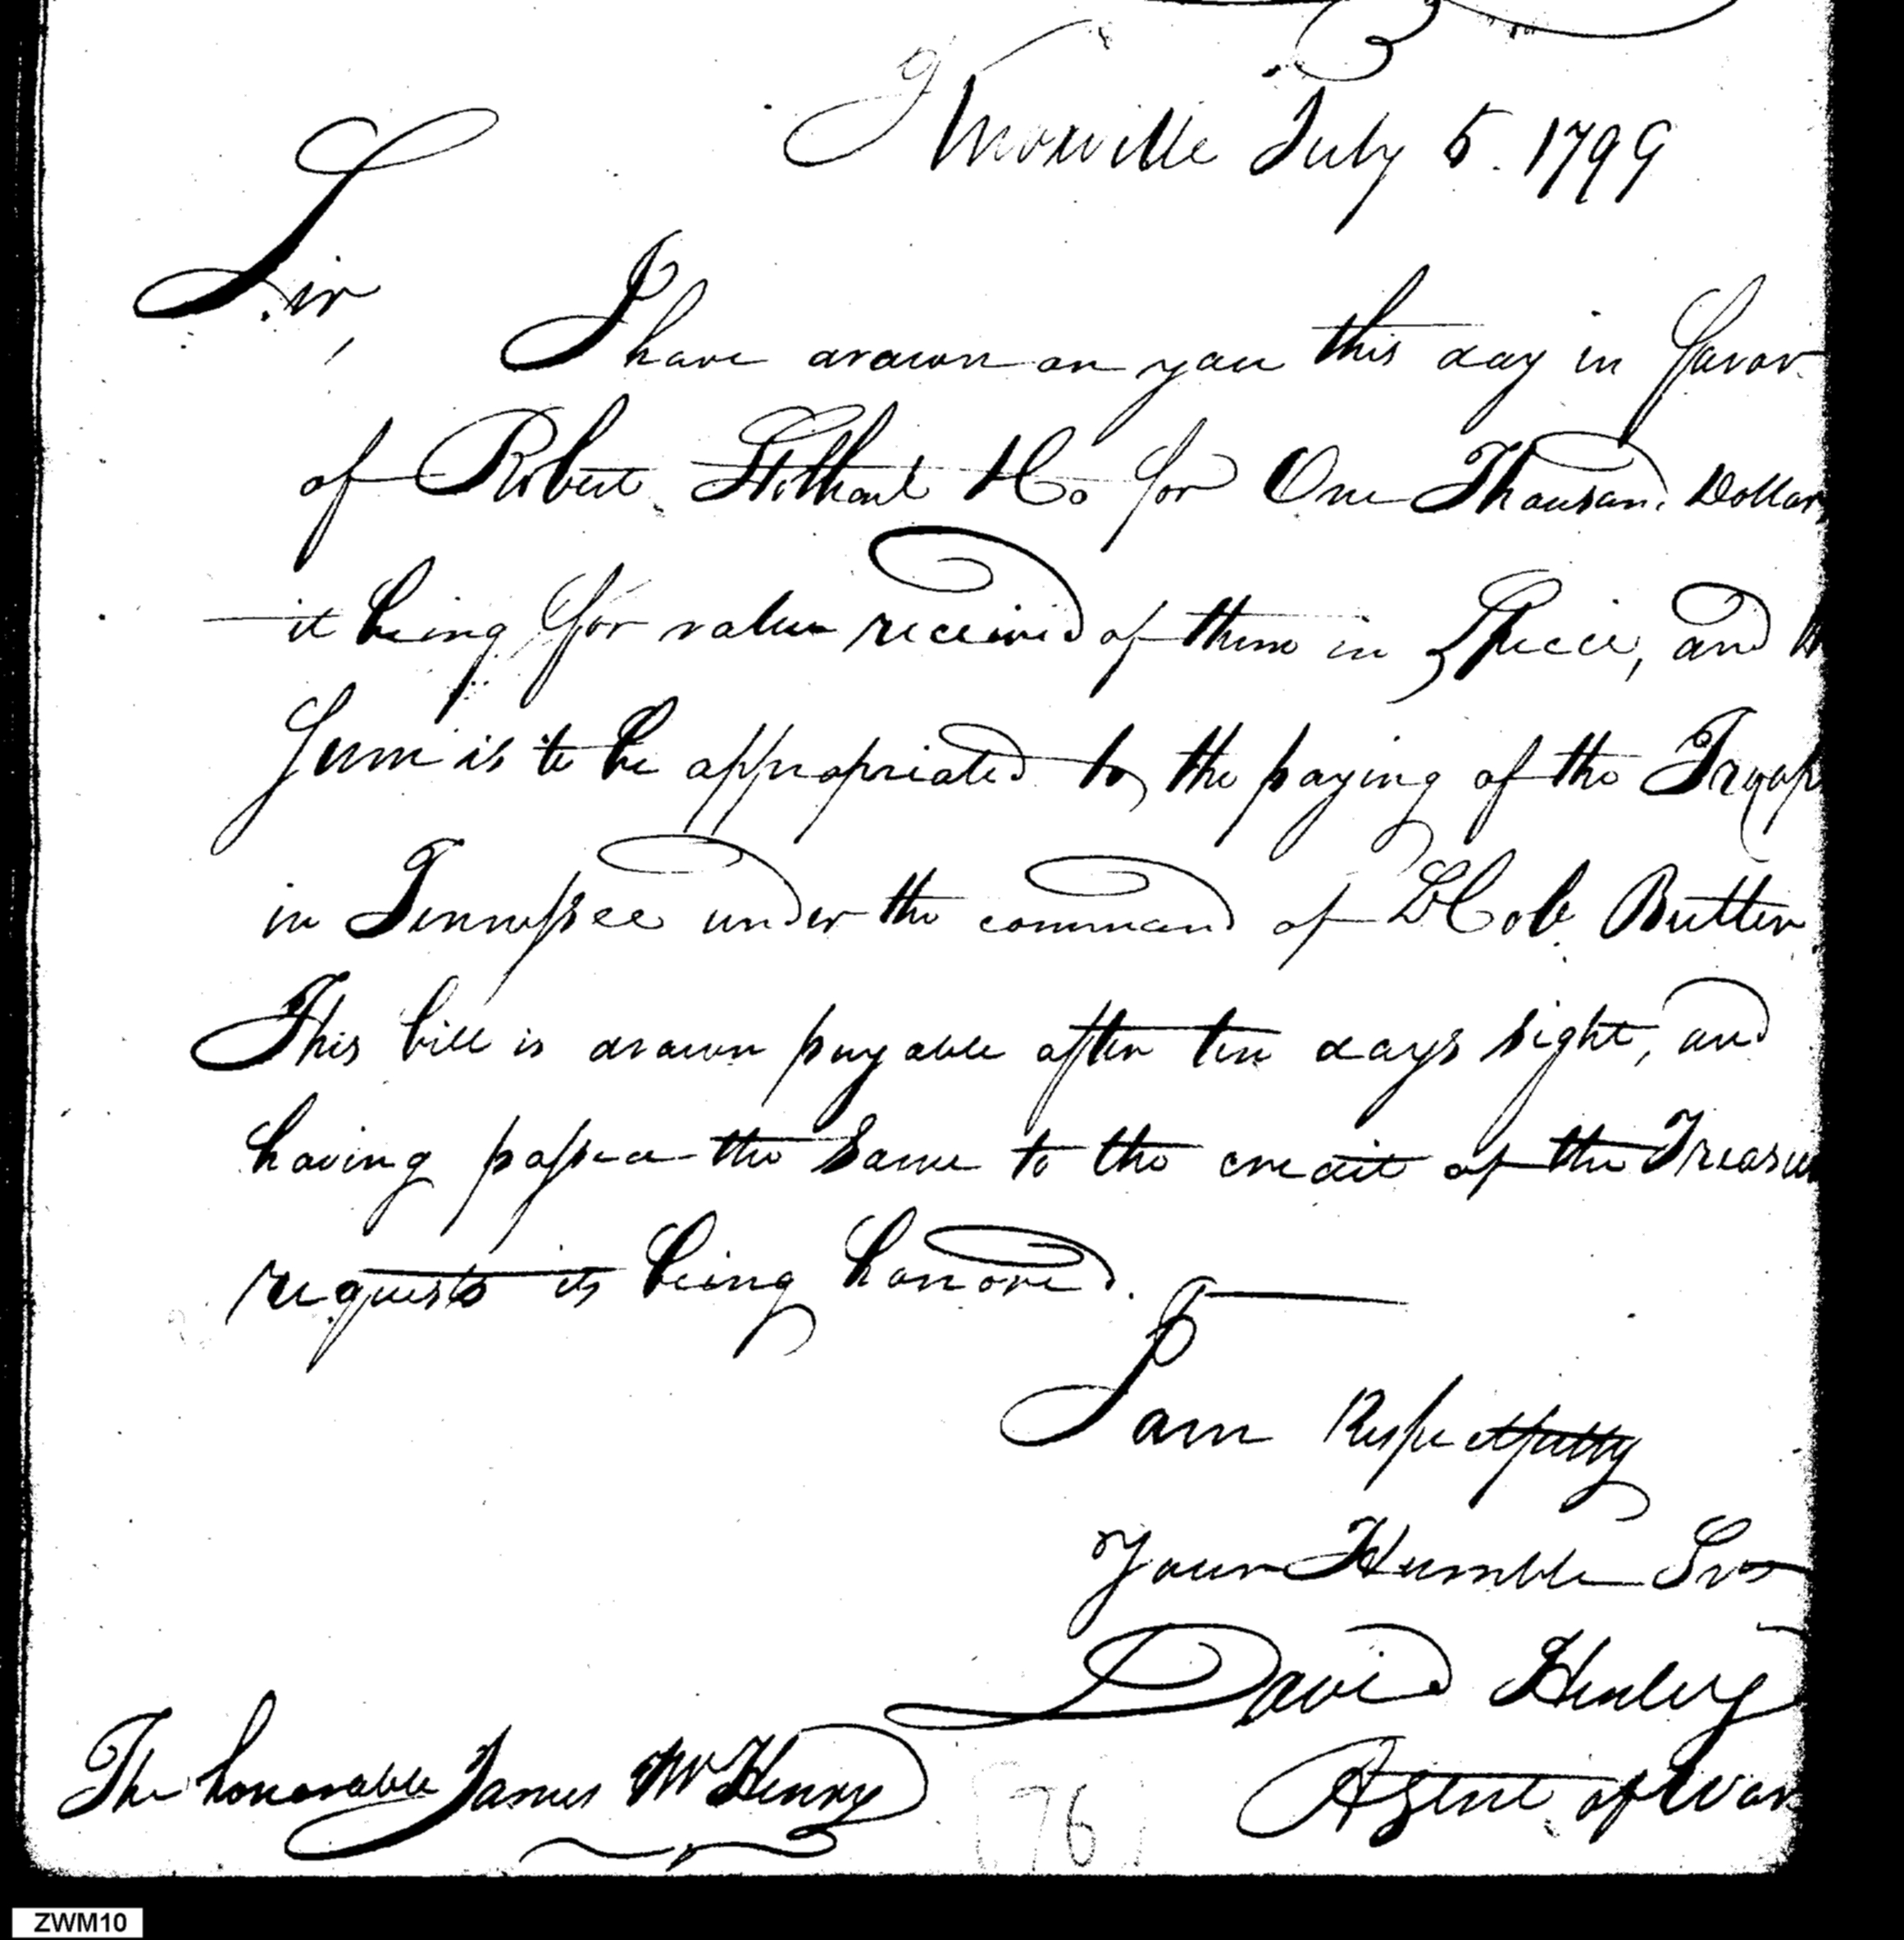 Knoxville July 5. 1799
Sir,
I have drawn on you this day in favor
of Robert Stothart & Co for One Thousand Dollars
it being for value received of them in Specie, and
Sum is to be appropriated to the paying of the Troops
in Tennessee under the command of Lt Col. Butler
This bill is drawn payable after ten days sight, and
having passed the same to the credit of the Treasu
requests its being honored.
I am Respectfully
Your Humble Svt
David Henley
Agent of War
The honorable James McHenry
76
ZWM10